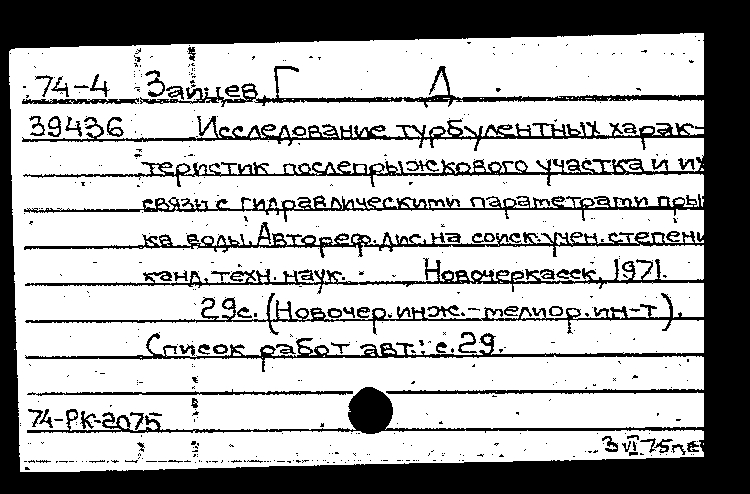 74-4 Зайцев, Г Д
39436 Исследование турбулентных харак-
теристик послепрыжкового участка и их
связи с гидравлическими параметрами прыж
ка воды. Автореф. дис. на соиск. учен. степени
канд. техн. наук. Новочеркасск, 1971.
29с. (Новочер. инж.-мелиор. ин-т).
Список работ авт.: с. 29.
74-РК-2075
3 VI 75